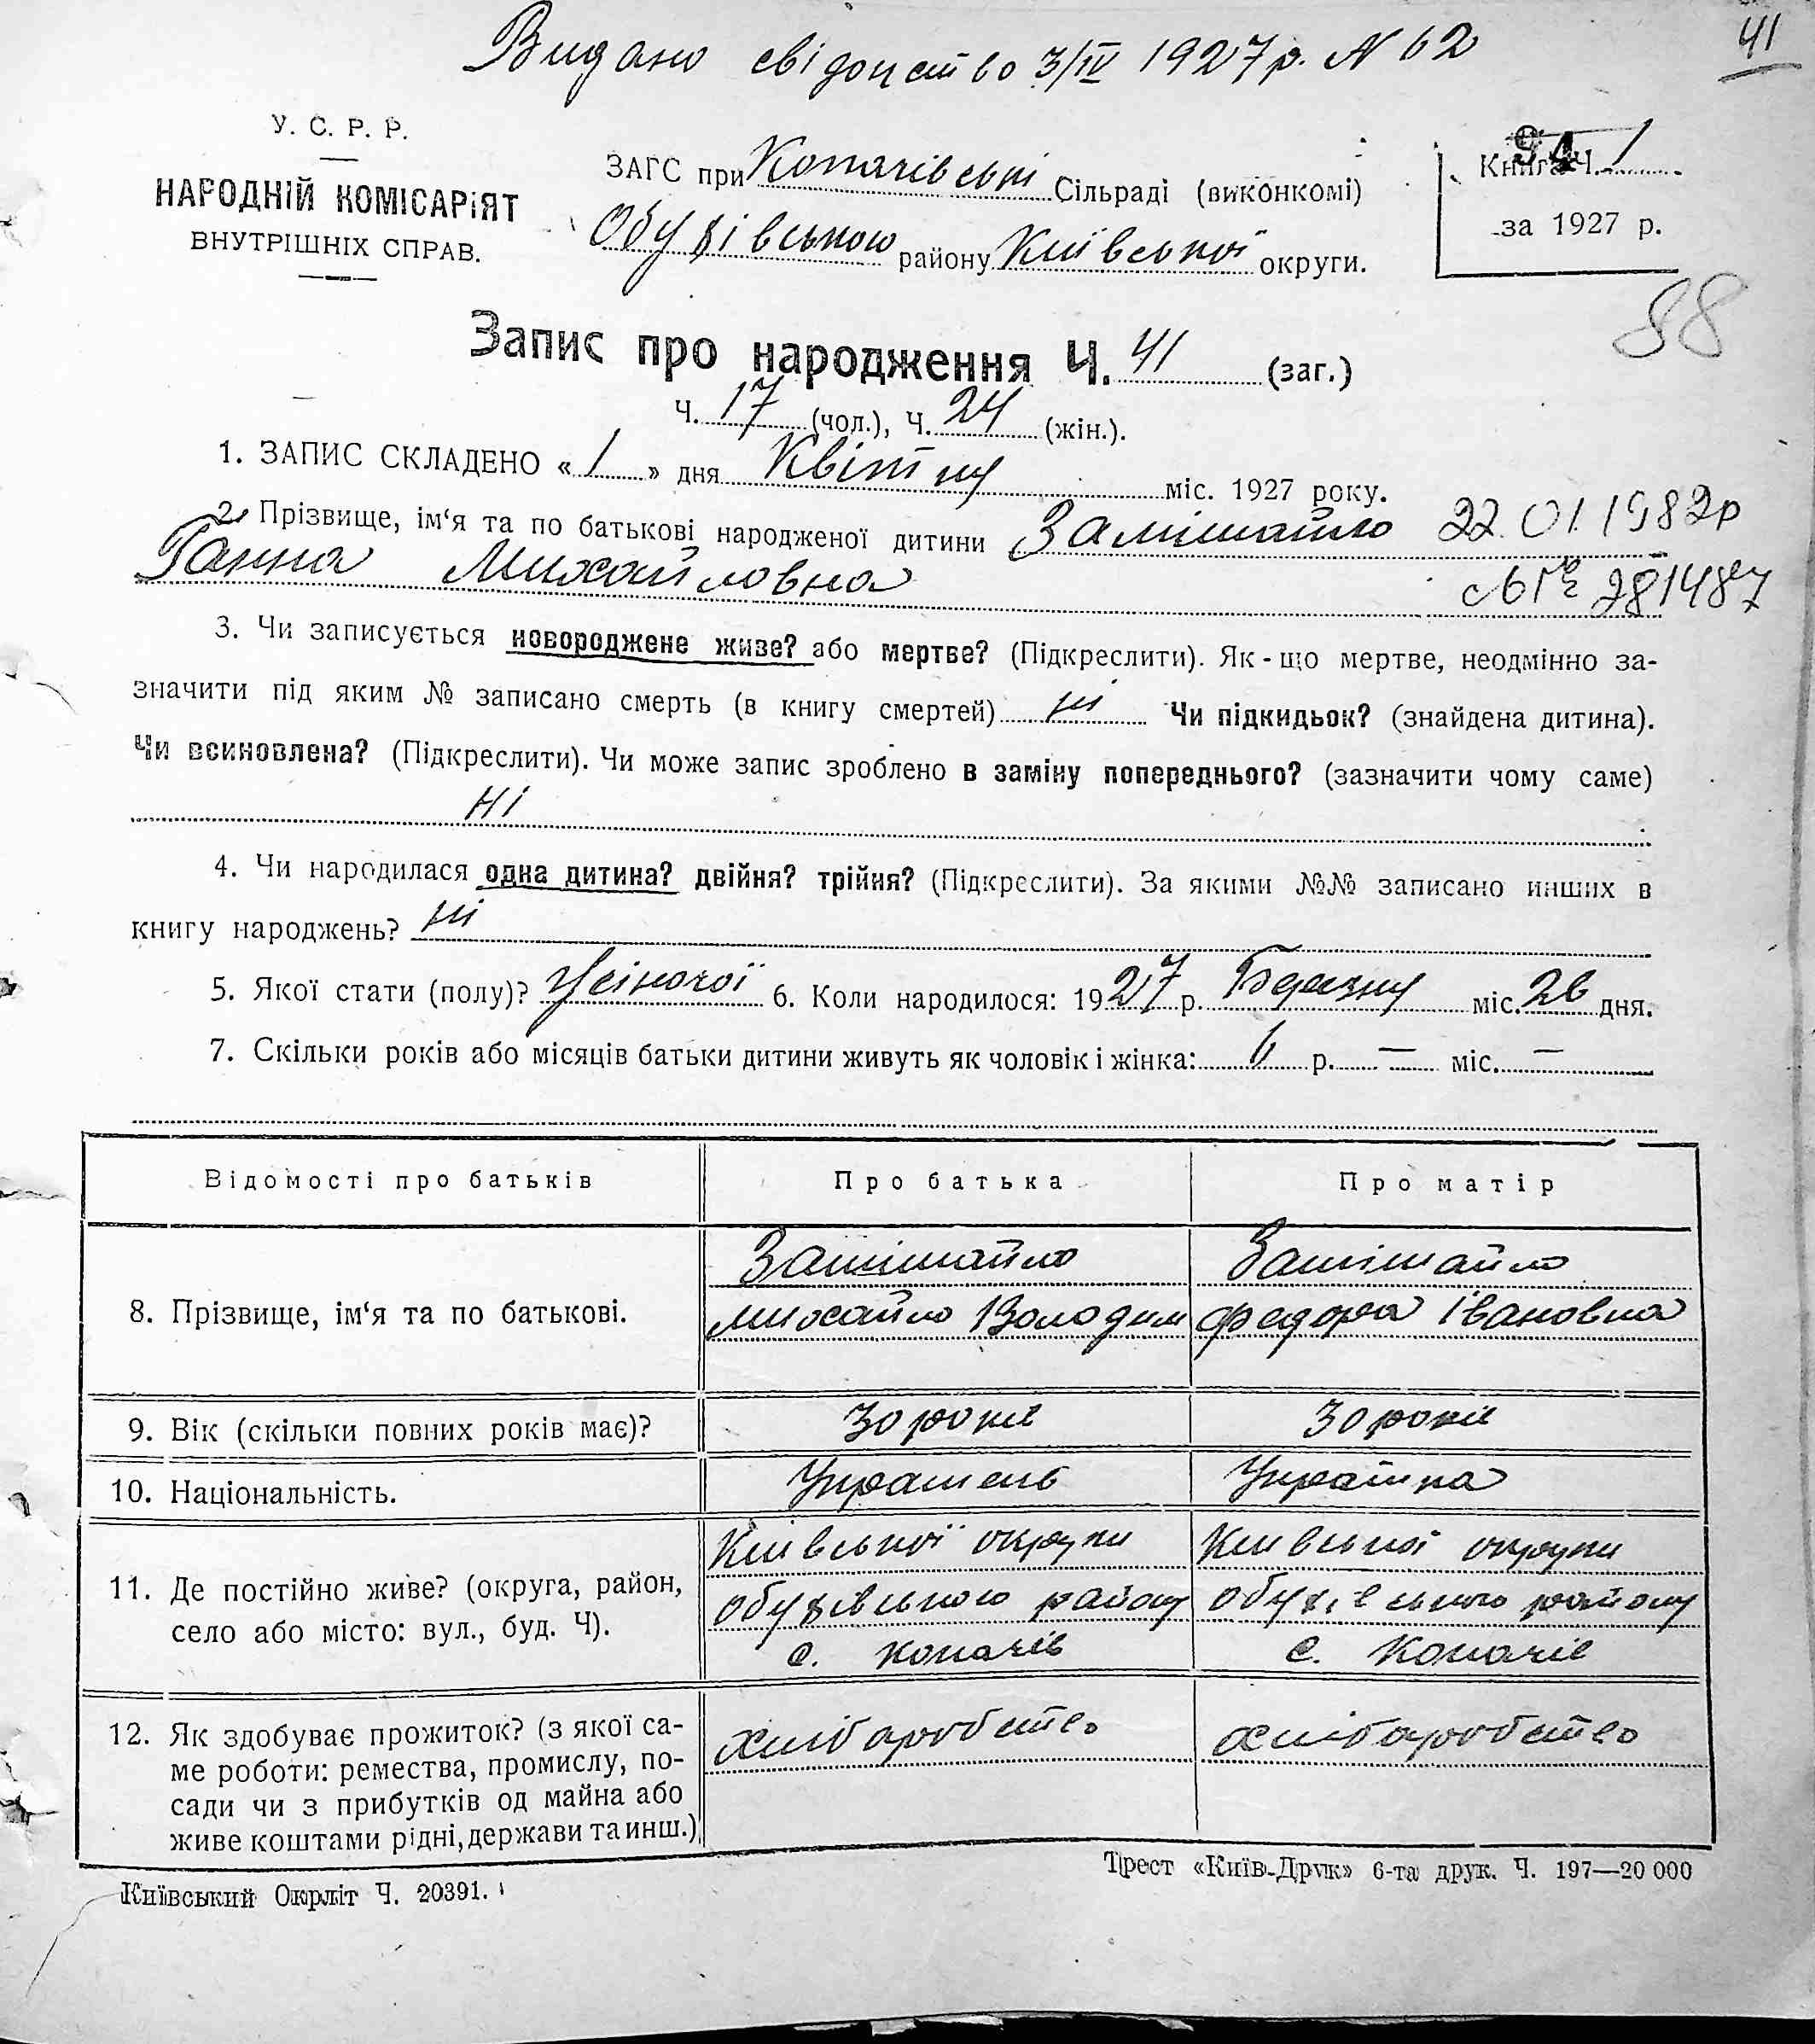 Видано свідоцтво 3/IV 1927 р. N 62
41
У. С. Р. Р.
НАРОДНІЙ КОМІСАРІЯТ
ВНУТРІШНІХ СПРАВ.
ЗАГС при Копачівські Сільраді (виконкомі)
Обухівського району Київської округи.
Книга Ч. 1
за 1927 р.
88
Запис про народження Ч. 41 (заг.)
Ч. 17 (чол.), Ч. 24 (жін.).
1. ЗАПИС СКЛАДЕНО « 1 » дня Квітня міс. 1927 року.
2. Прізвище, ім'я та по батькові народженої дитини Замішайло 22.01.1982р
Ганна Михайловна № 281487
3. Чи записується новороджене живе? або мертве? (Підкреслити). Як-що мертве, неодмінно за-
значити під яким № записано смерть (в книгу смертей) ні Чи підкидьок? (знайдена дитина).
Чи всиновлена? (Підкреслити). Чи може запис зроблено в заміну попереднього? (зазначити чому саме)
ні
4. Чи народилася одна дитина? двійня? трійня? (Підкреслити). За якими №№ записано инших в
книгу народжень? ні
5. Якої стати (полу)? Жіночої 6. Коли народилося: 1927 р. Березня міс. 26 дня.
7. Скільки років або місяців батьки дитини живуть як чоловік і жінка: 6 р. — міс. —
Відомості про батьків Про батька Про матір
8. Прізвище, ім'я та по батькові.
Замішайло Замішайло
Михайло Володим Федора Івановна
9. Вік (скільки повних років має)? 30 років 30 років
10. Національність. Українець Українка
11. Де постійно живе? (округа, район,
село або місто: вул., буд. Ч).
Київської округи Київської округи
Обухівського району Обухівського району
с. Копачів с. Копачів
12. Як здобуває прожиток? (з якої са-
ме роботи: ремества, промислу, по-
сади чи з прибутків од майна або
живе коштами рідні, держави та инш.)
хліборобство хліборобство
Київський Окрліт Ч. 20391.
Трест «Київ-Друк» 6-та друк. Ч. 197—20 000